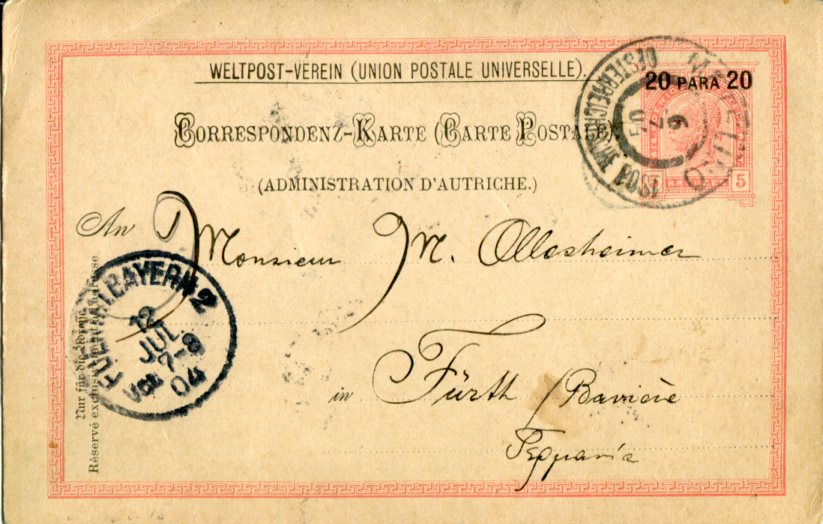 WELTPOST-VEREIN (UNION POSTALE UNIVERSELLE).
20 PARA 20
CORRESPONDENZ-KARTE (CARTE POSTALE)
(ADMINISTRATION D'AUTRICHE.)
OESTERREICHISCHE
6
7
04
5
An Monsieur M. Ollesheimer
FUERTH(BAYERN)2
12
JUL.
7-8
04
in Fürth / Bavière
Nur für die Adresse
Réservé exclus